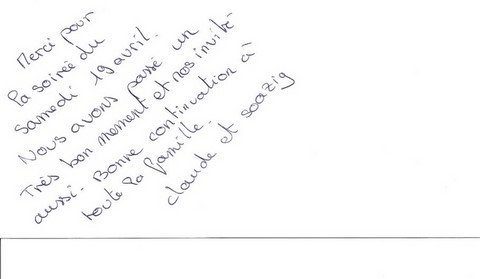 Merci pour
la soirée du
samedi 19 avril.
Nous avons passé un
Très bon mement et nos invité
aussi. Bonne continuation à
toute la famille.
claude et soazig